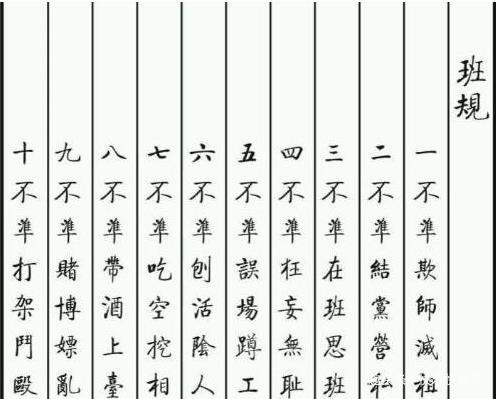 班規
一不準欺師滅祖
二不準結黨營私
三不準在班思班
四不準狂妄無耻
五不準誤場蹲工
六不準刨活陰人
七不準吃空挖相
八不準帶酒上臺
九不準賭博嫖亂
十不準打架鬥毆